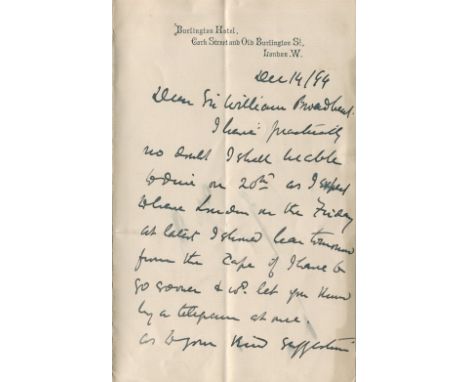 Burlington Hotel,
Cork Street and Old Burlington St.,
London. W.
Dec 14/99
Dear Sir William Broadbent.
I have practically
no doubt I shall be able
to dine on 20th as I expect
to leave London on the Friday
at latest I should hear tomorrow
from the Cape if I have to
go sooner & wd. let you know
by a telegram at once.
as to your kind suggestion